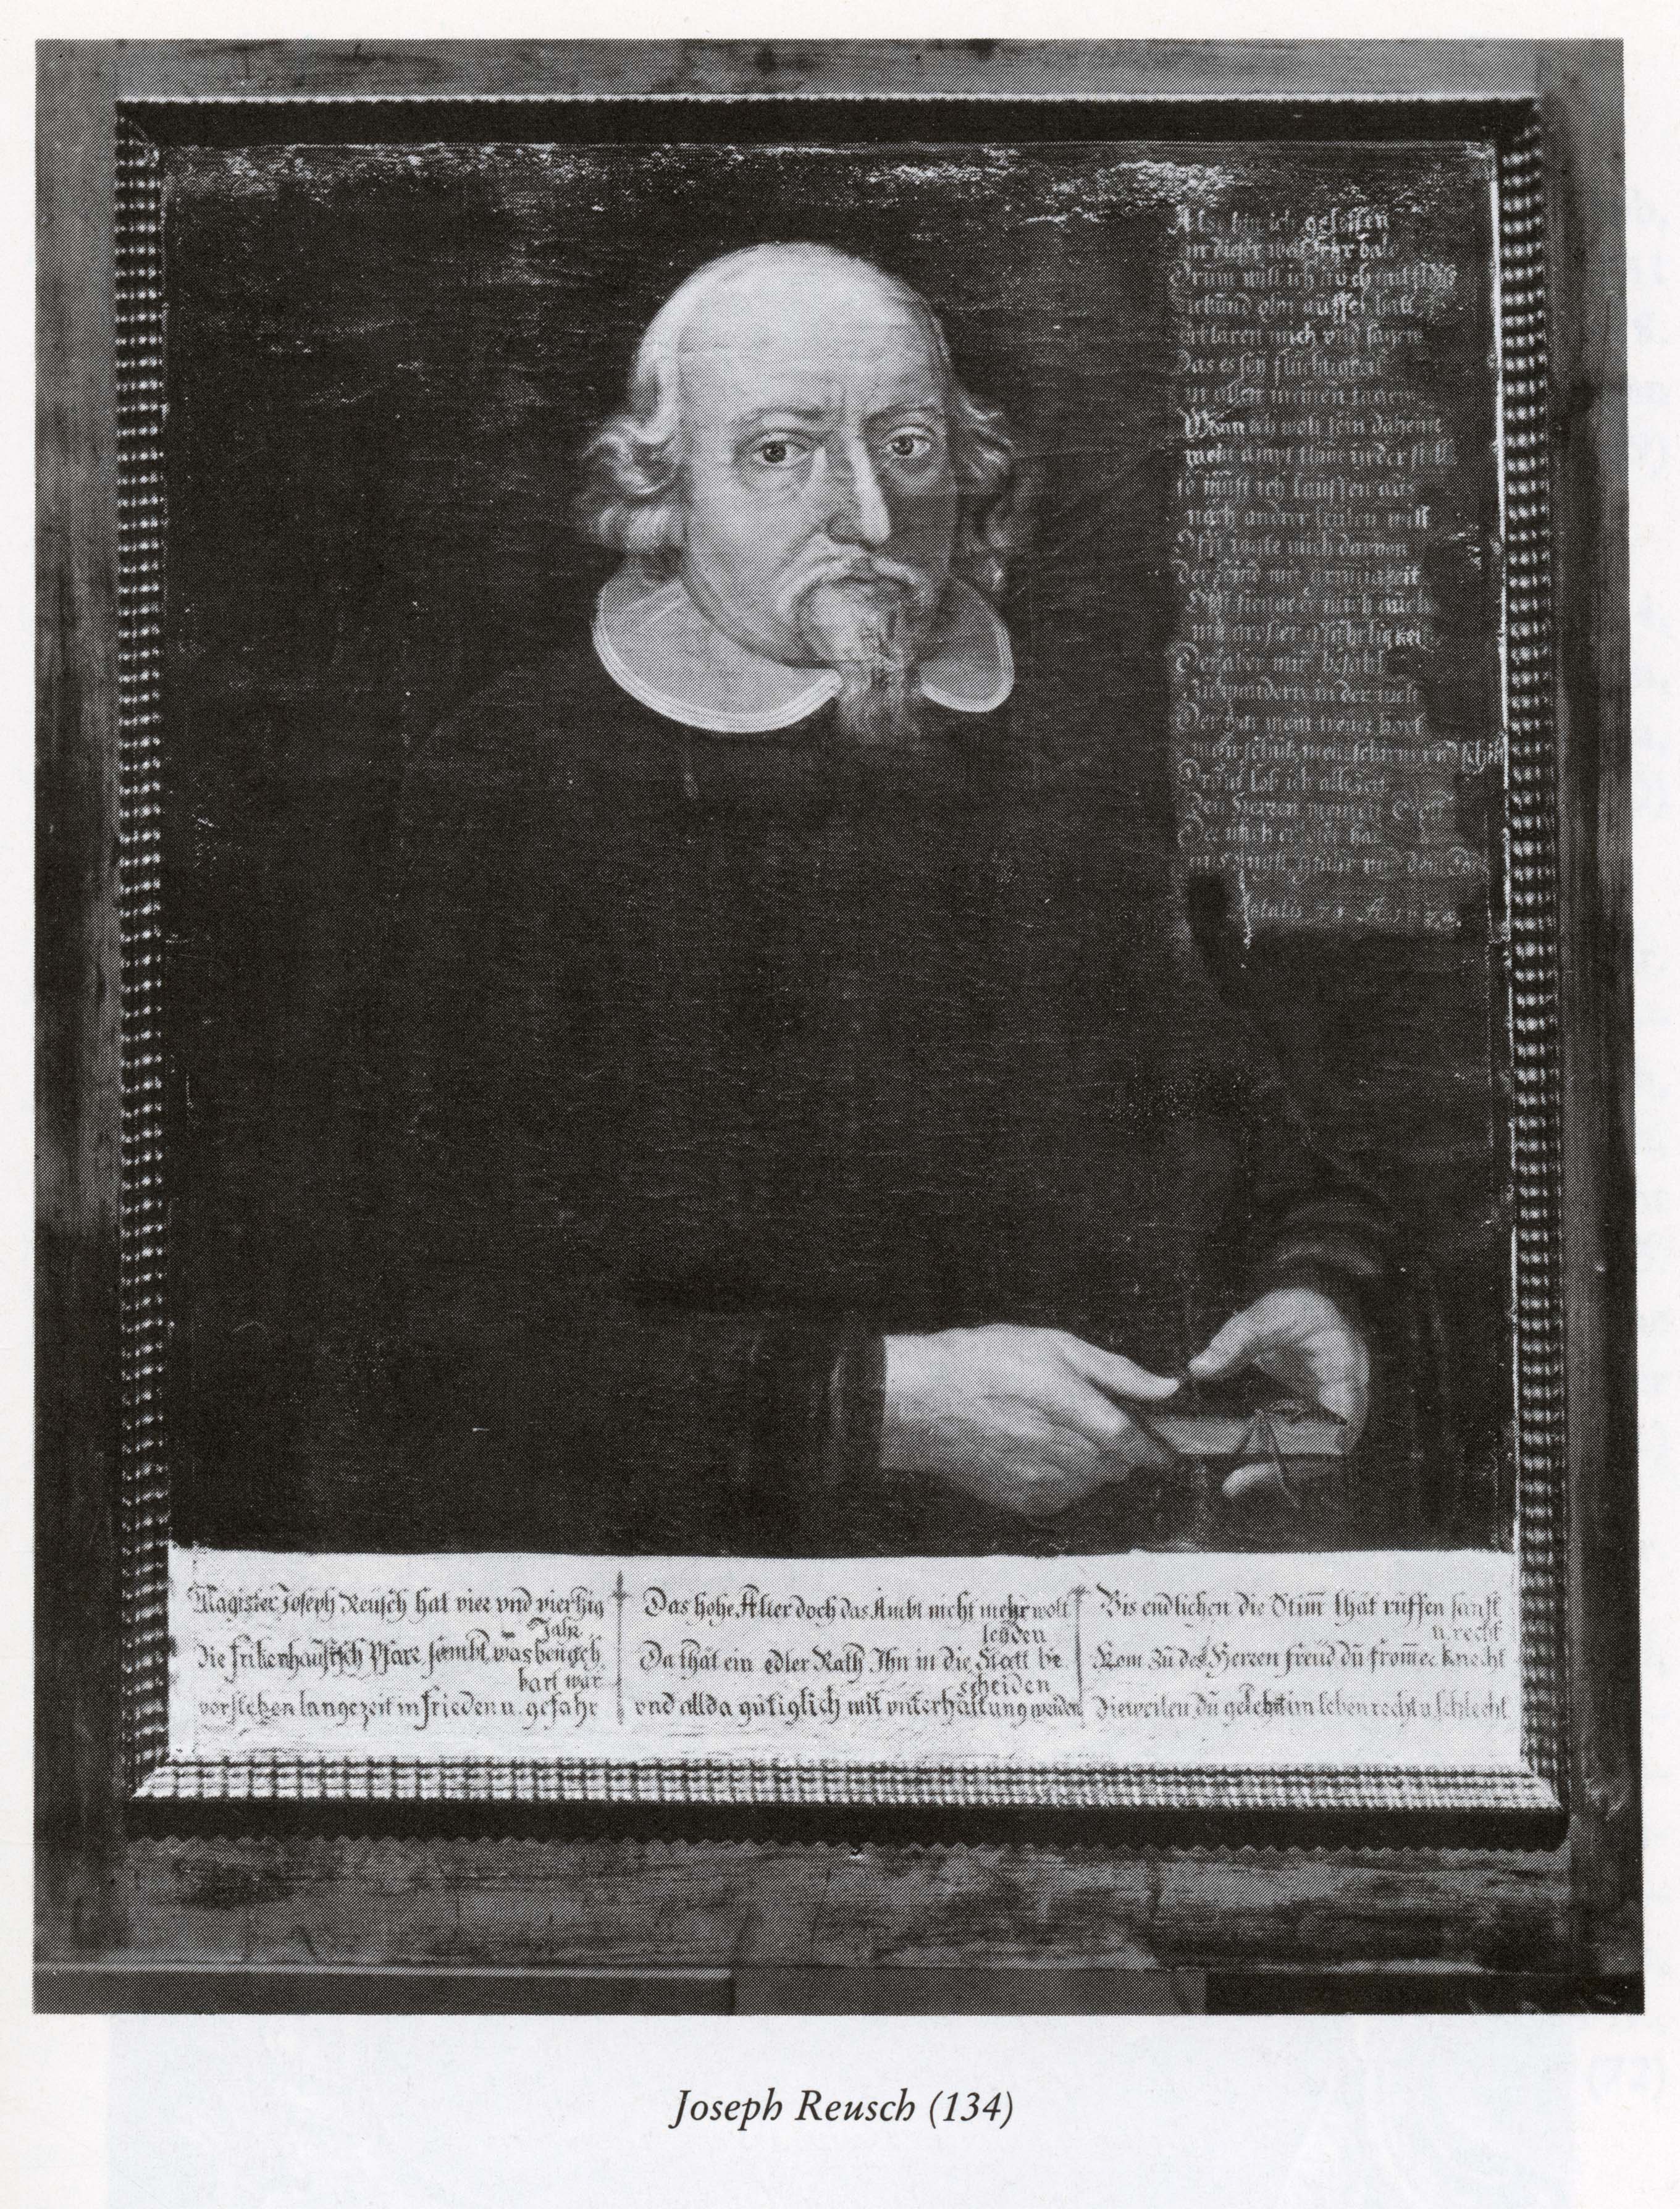 Also bin ich gesessen
in dieser welt sehr
Drum will ich noch
ohn auffenhalt
mich und sagen
Das es sey fluchtigkeit
in allen meinen tagen
Wann ich wolt sein daheim
mein ampt in der still
so must ich lauffen aus
nach anderer leuten will
Offt jagte mich darvon
Der feind mit grimigkeit
Offt mich auch
mit grosser gfährligkeit
Der aber mir befahl
in der welt
Der war mein treuer hort
mein schutz mein schirm und schilt
Drum lob ich allezeit
Den Herren meinen Gott
Der mich erlöset hat
aus angst gfahr und dem
Aetatis 71 A
Magister Joseph Reüsch hat vier vnd vierhig
Jahr
Die frikenhaüsisch Pfarr sambt was benach
bart war
vorstehen lange zeit in frieden u. gefahr
Das hohe Alter doch das Ambt nicht mehr wolt
leyden
Da thät ein edler Rath Ihn in die Statt be
scheiden
vnd allda gütiglich mit vnterhaltung weiden
Bis endlichen die Stim̄ thät rüffen sanfft
u. recht
Kom zu des Herren freüd dü from̄er Knecht
Dieweilen Dü gelebt im leben recht u schlecht
Joseph Reusch (134)